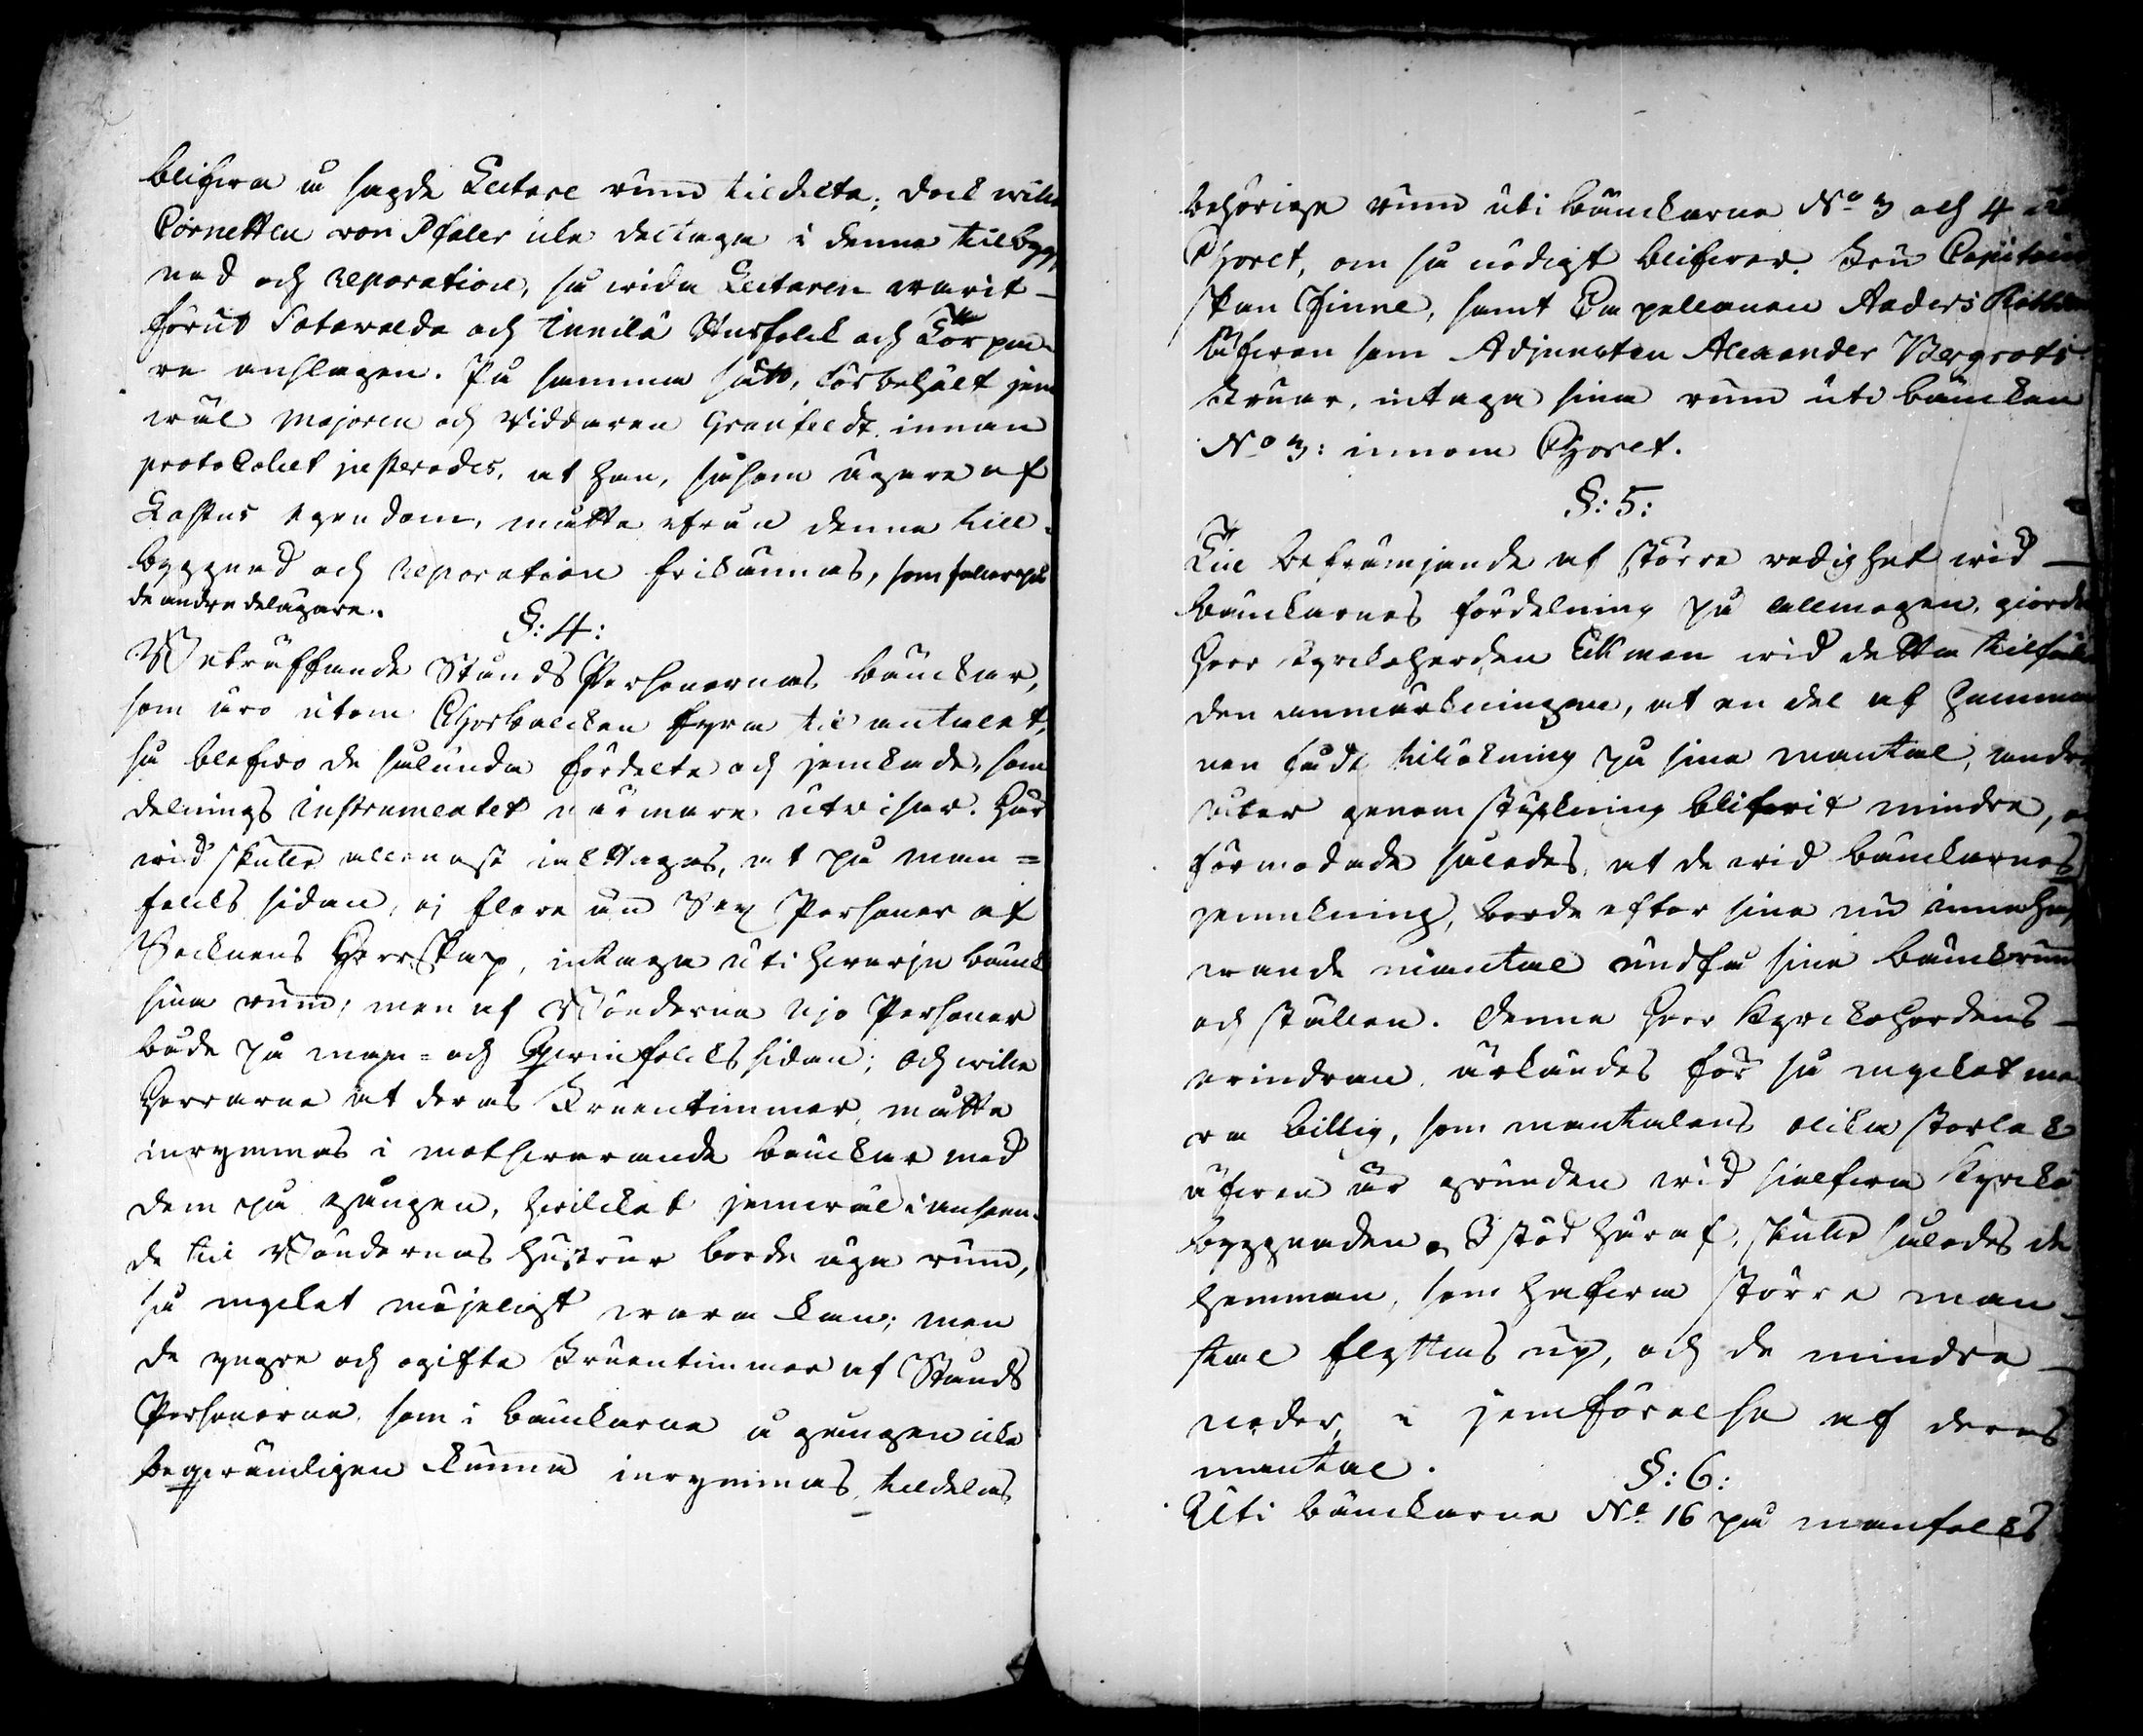 blifwa å sagde Lectare rum tildelte; dock wille
Cornetten von Pfaler icke deltaga i denna tilbygg-
nad och reparation, så wida Lectaren warit
förut Satawalda och Innilä Husfolck och
re anslagen. På samma sätt, förbehölt jem
wäl Majoren och Riddaren Granfeldt innan
protocollet justerades, at han, såsom ägare af
egendom, måtte ifrån denna till-
byggnad och reparation frikännas, som faller på
de andre delägare.
§: 4:
Beträffande Stånds Personernas bänckar,
som äro utom Chorbalcken fyra til antalet,
så blefwo de sålunda fördelte och jemckade, som
delnings instrumentet närmare utwisar. Här
wid skulle allenast iacttagas, at på man=
folcks sidan, ej flere än Sex Personer af
Socknens Herrskap, intaga uti hwarje bänck
sina rum; men af Bönderna Sju Personer
både på man= och Qwinfolcks sidan; och wille
Herrarne at deras Fruentimmer, måtte
inrymmas i motswarande bänckar med
dem på gången, hwilcket jemwäl i anseen-
de til Böndernas hustrur borde äga rum,
så mycket möjeligt wara kan; men
de yngre och ogifta Fruentimmer af Stånds
Personerne, som i bänckarne å gången icke
beqwämligen kunna inrymmas, tildelas
behörige rum uti bänckarne No 3 och 4
Choret, om så nödigt blifwer. Fru Capitain
skan Finne, samt Capellanen Anders
äfwen som Adjuncten Alexander Bergroths
Fruar, intaga sina rum uti bäncken
No 3: innom Choret.
§: 5:
Til befrämjande af större redighet wid
bänckarnes fördelning på allmogen, giorde
Herr Kyrckoherden Ekman wid detta tilfälle
den anmärkningen, at en del af hemma-
nen fådt tilökning på sina mantal, andre
åter genom styckning blifwit mindre,
förmodade således, at de wid bänckarnes
jemckning, borde efter sina nu innehaf-
wande mantal undfå sina bänckrum
och ställen. Denna Herr Kyrckoherdens
erindran, ärkändes för så mycket me-
ra billig, som mantalens olika storlek
äfwen är grunden wid sielfwa Kyrcko
byggnaden. I stöd häraf, skulle således de
hemman, som hafwa större man-
tal flyttas up, och de mindre
neder, i jemförelse af deras
mantal.
§: 6:
Uti bänckarne No 16 på manfolcks